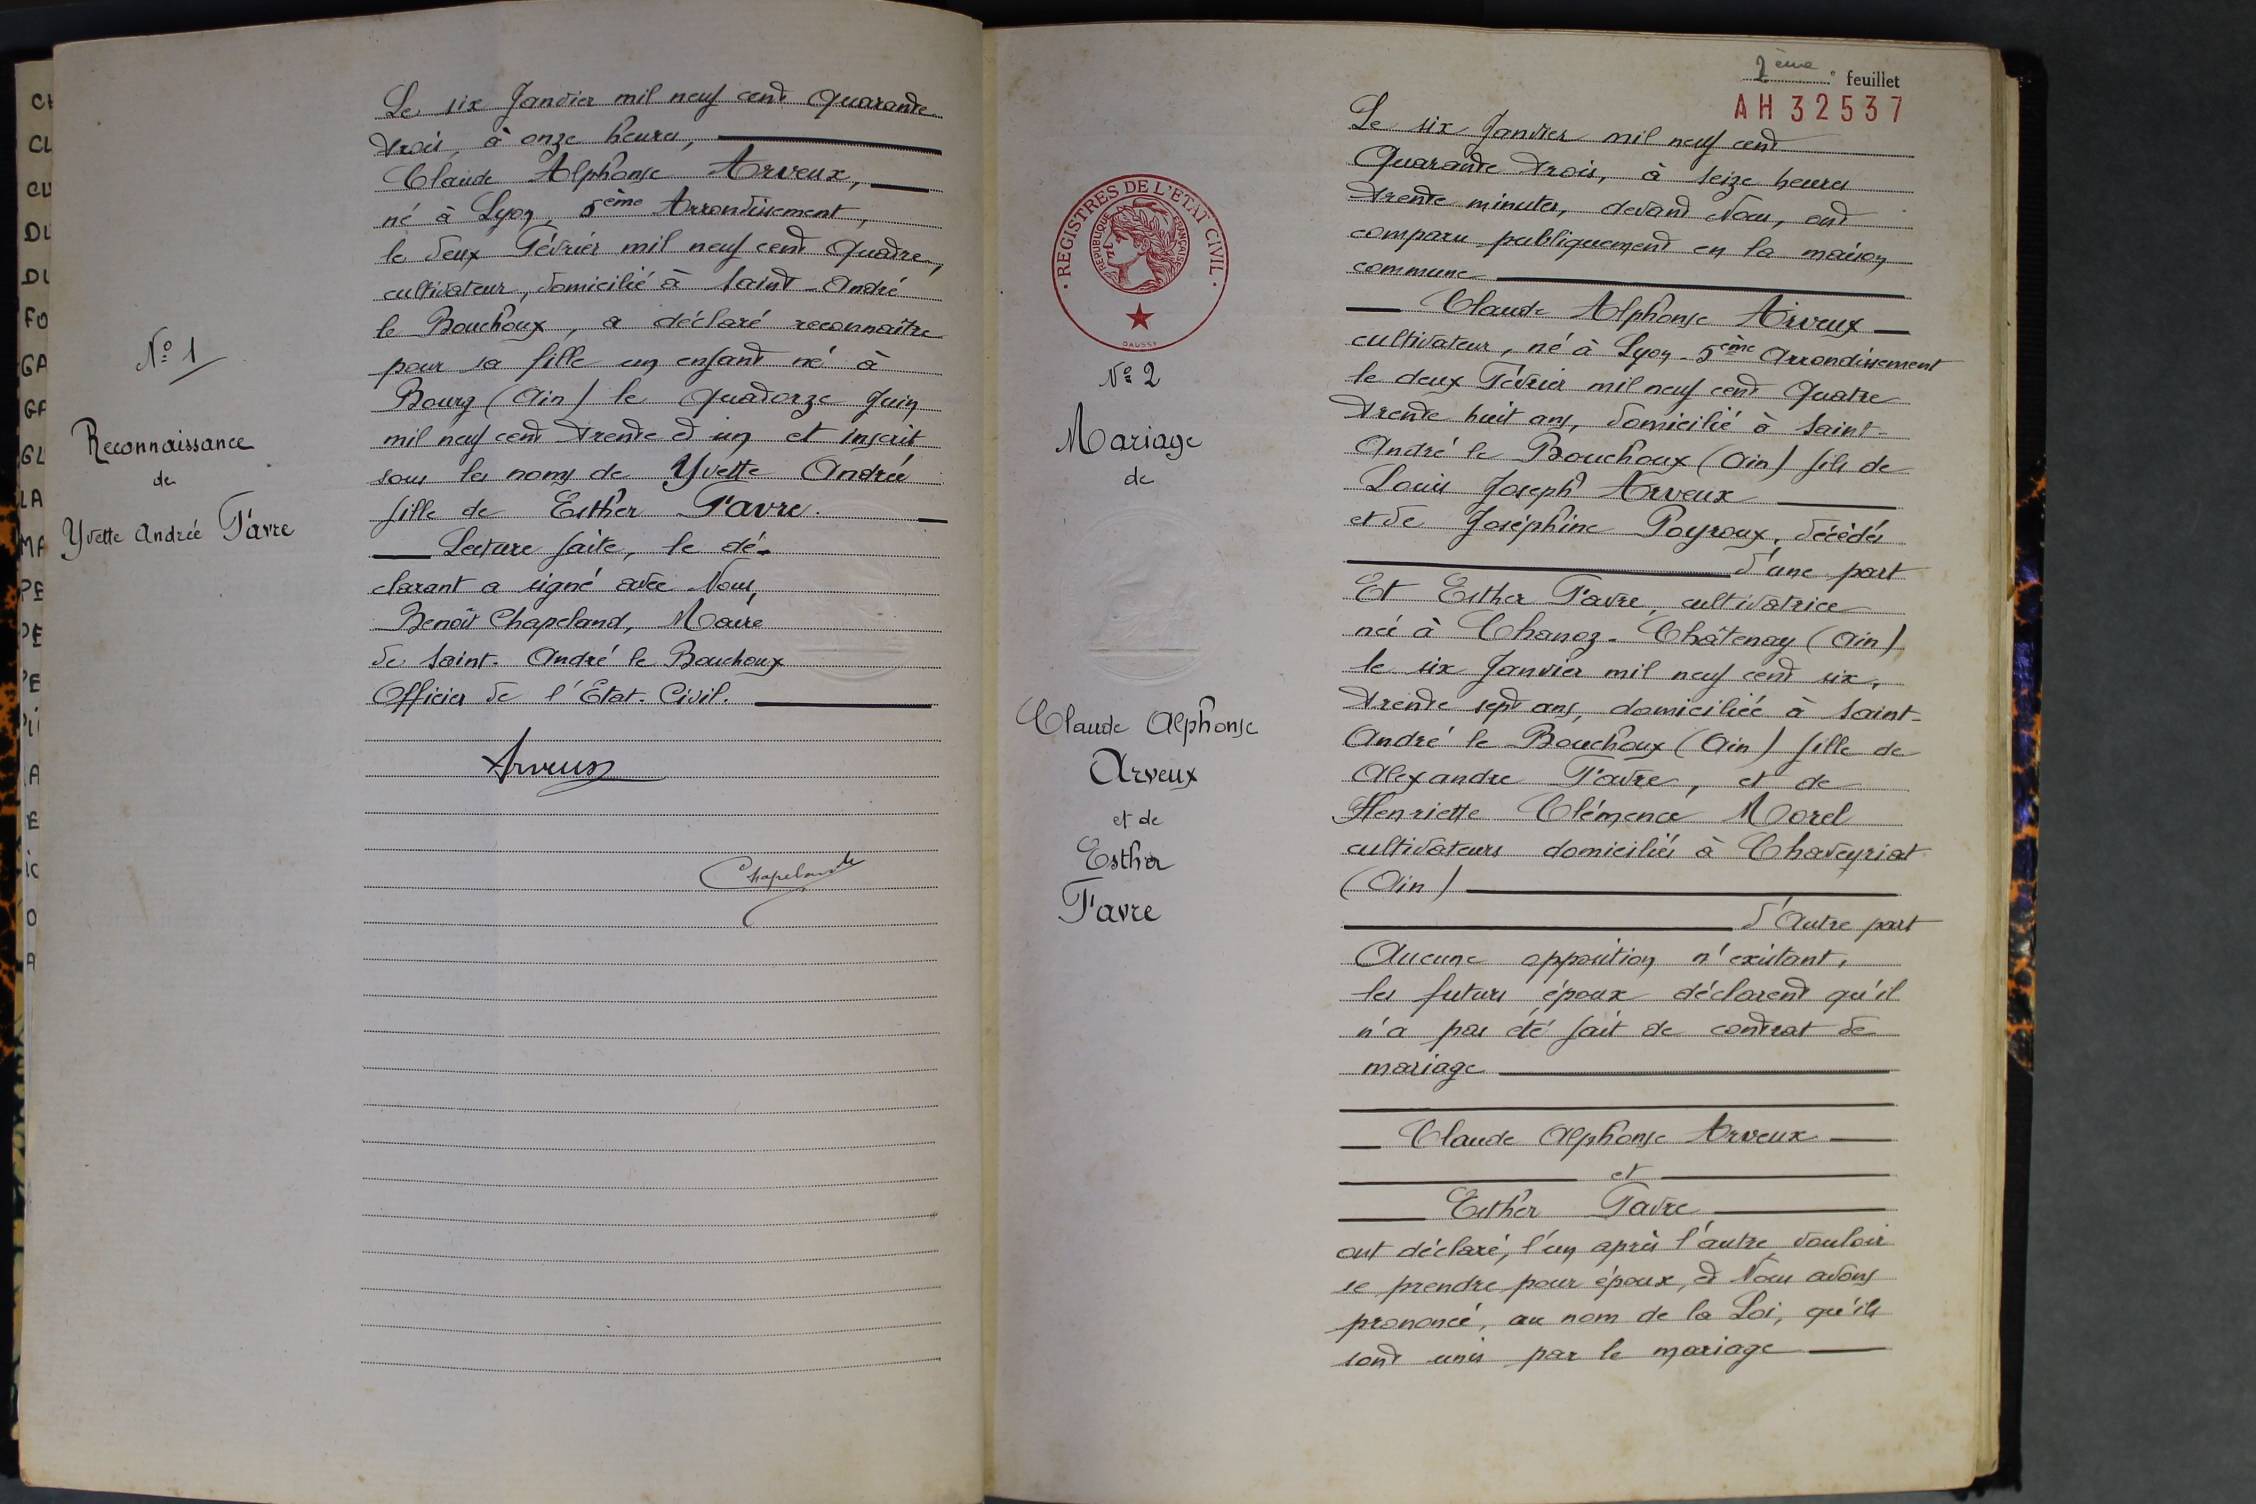 N° 1
Reconnaissance
de
Yvette Andrée Favre
Le six Janvier mil neuf cent quarante
trois, à onze heures,
Claude Alphonse Arveux,
né à Lyon, 5ème Arrondissement,
le deux Février mil neuf cent quatre,
cultivateur, domicilié à Saint-André
le Bouchoux, a déclaré reconnaître
pour sa fille un enfant né à
Bourg (Ain) le quatorze Juin
mil neuf cent trente et un et inscrit
sous les noms de Yvette Andrée
fille de Esther Favre.
Lecture faite, le dé-
clarant a signé avec Nous,
Benoît Chapeland, Maire
de Saint-André le Bouchoux
Officier de l'Etat-Civil.
Arveux
Chapeland
2ème feuillet
AH 32537
REGISTRES DE L'ETAT CIVIL
REPUBLIQUE FRANÇAISE
DAUSSY
N° 2
Mariage
de
Claude Alphonse
Arveux
et de
Esther
Favre
Le six Janvier mil neuf cent
quarante trois, à seize heures
trente minutes, devant Nous, ont
comparu publiquement en la maison
commune
Claude Alphonse Arveux
cultivateur, né à Lyon-5ème Arrondissement
le deux Février mil neuf cent quatre
trente huit ans, domicilié à Saint-
André le Bouchoux (Ain) fils de
Louis Joseph Arveux
et de Joséphine Poyroux, décédés
d'une part
Et Esther Favre, cultivatrice
née à Chanoz-Châtenay (Ain)
le six Janvier mil neuf cent six,
trente sept ans, domiciliée à Saint-
André le Bouchoux (Ain) fille de
Alexandre Favre, et de
Henriette Clémence Morel
cultivateurs domiciliés à Chaveyriat
(Ain)
d'Autre part
Aucune opposition n'existant,
les futurs époux déclarent qu'il
n'a pas été fait de contrat de
mariage
Claude Alphonse Arveux
et
Esther Favre
ont déclaré, l'un après l'autre vouloir
se prendre pour époux, et Nous avons
prononcé, au nom de la Loi, qu'ils
sont unis par le mariage